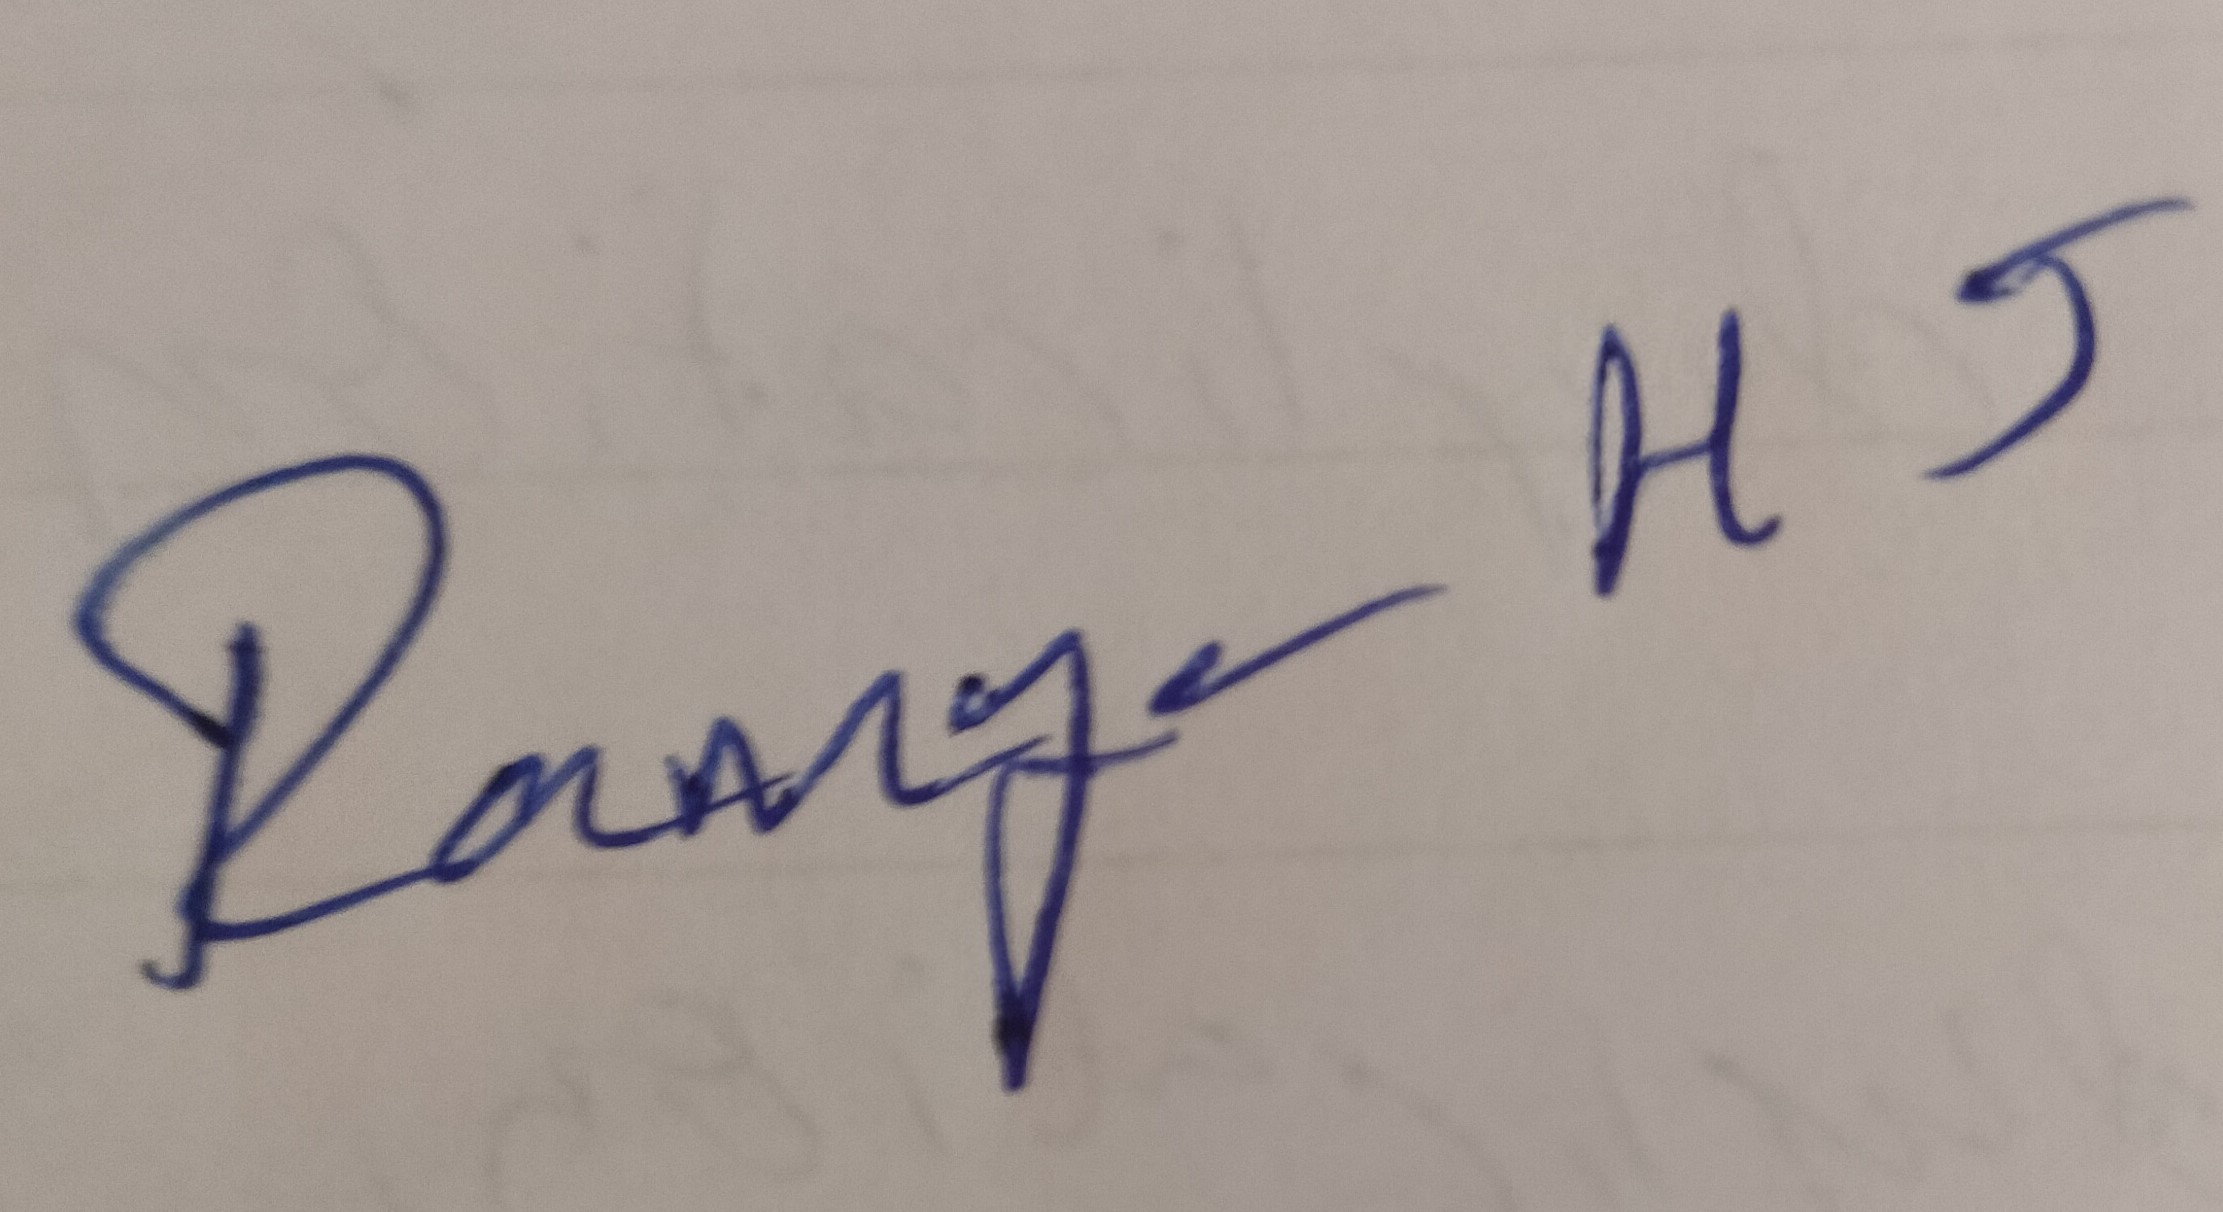 Ramya H J